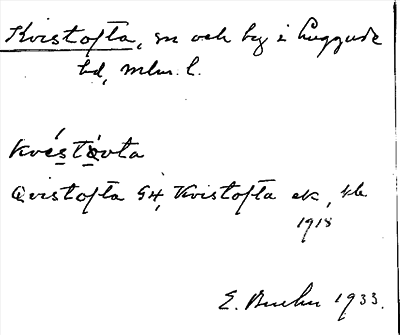 Kvistofta, sn och by i Luggude
hd, Mlm. l.
kvéstòvta
Qvistofta G4, Kvistofta ek,
1918
E. 1933.